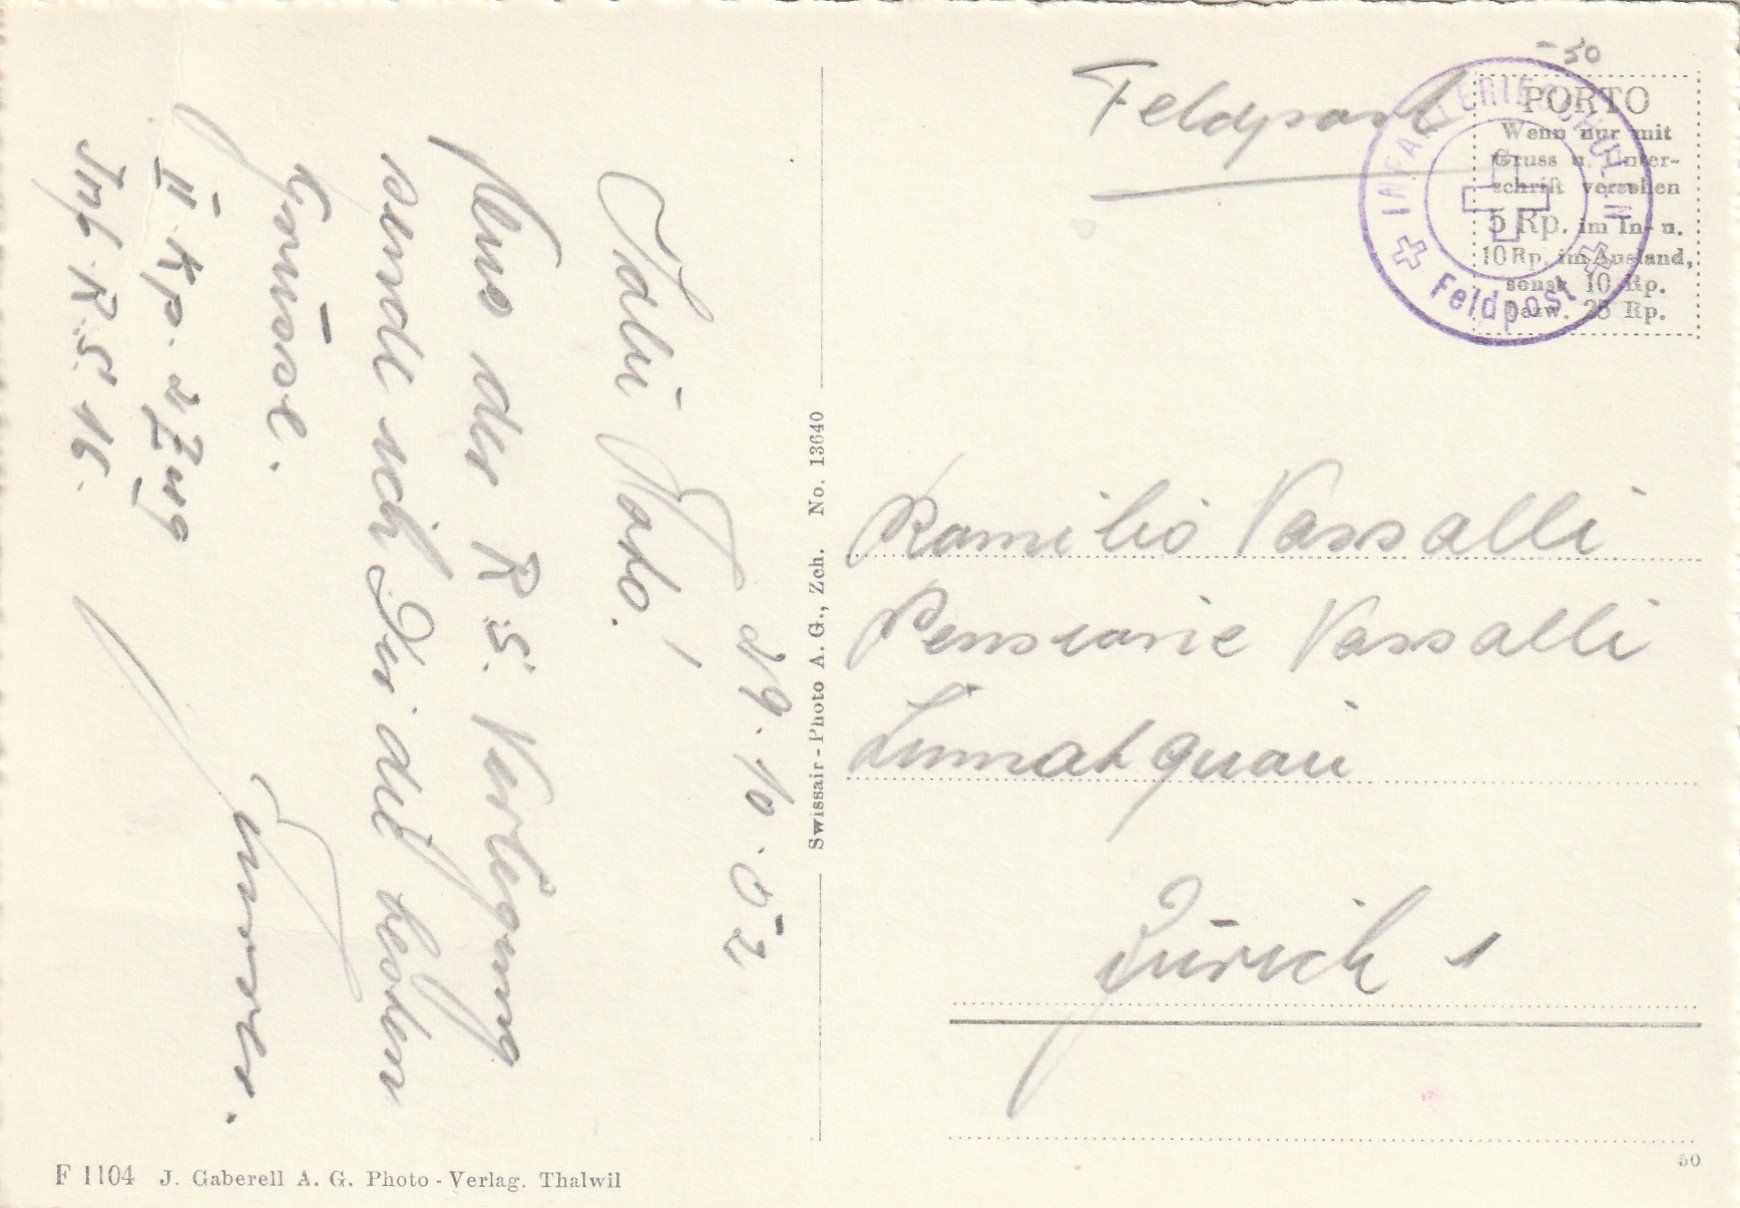 29.10.52
Aus der R.S. Verlegung
sende ich Dir die besten
Grüsse.
II. Kp. 2. Zug
Inf. R.S. 16.
Swissair-Photo A. G., Zch. No. 13640
F 1104 J. Gaberell A. G. Photo-Verlag. Thalwil
Feldpost
-50
PORTO
Wenn nur mit
Gruss u. Unter-
schrift versehen
5 Rp. im In- u.
10 Rp. im Ausland,
sonst 10 Rp.
bezw. 25 Rp.
INFANTERIESCHULEN
Feldpost
Kamilio Vassalli
Pensione Vassalli
Limmatquai
Zürich 1
50